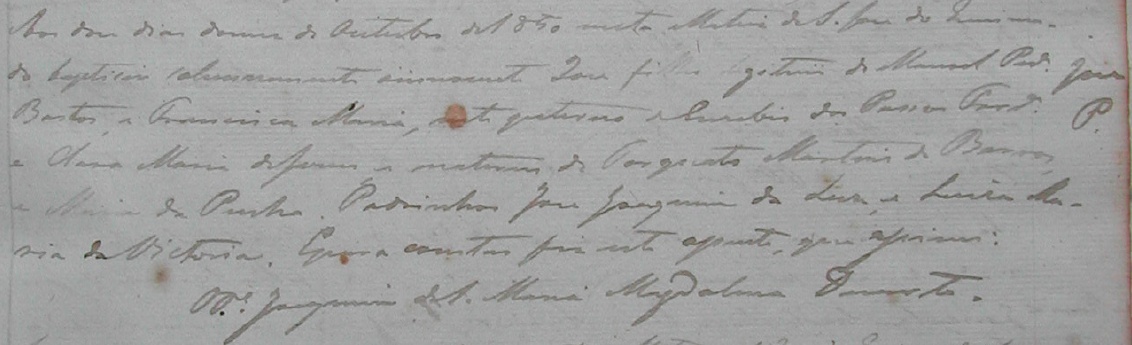 Aos dous dias do mez de Outubro de 1850 nesta Matriz de S. Jose do
do baptizei solemnemente innocente Jose filho legitimo de Manoel Ped.
Jose
Bastos, e Francisca Maria, neto paterno de Euzebio dos Passos
P.
e Anna Maria de Jesus e materno de Torquato Martins de Barros,
e Maria da Penha. Padrinhos Jose Joaquim da Luz, e Luiza Ma-
ria da Victoria. E para constar fiz este assento, que assinei.
O P.e Joaquim de S. Maria Magdalena Duarte.